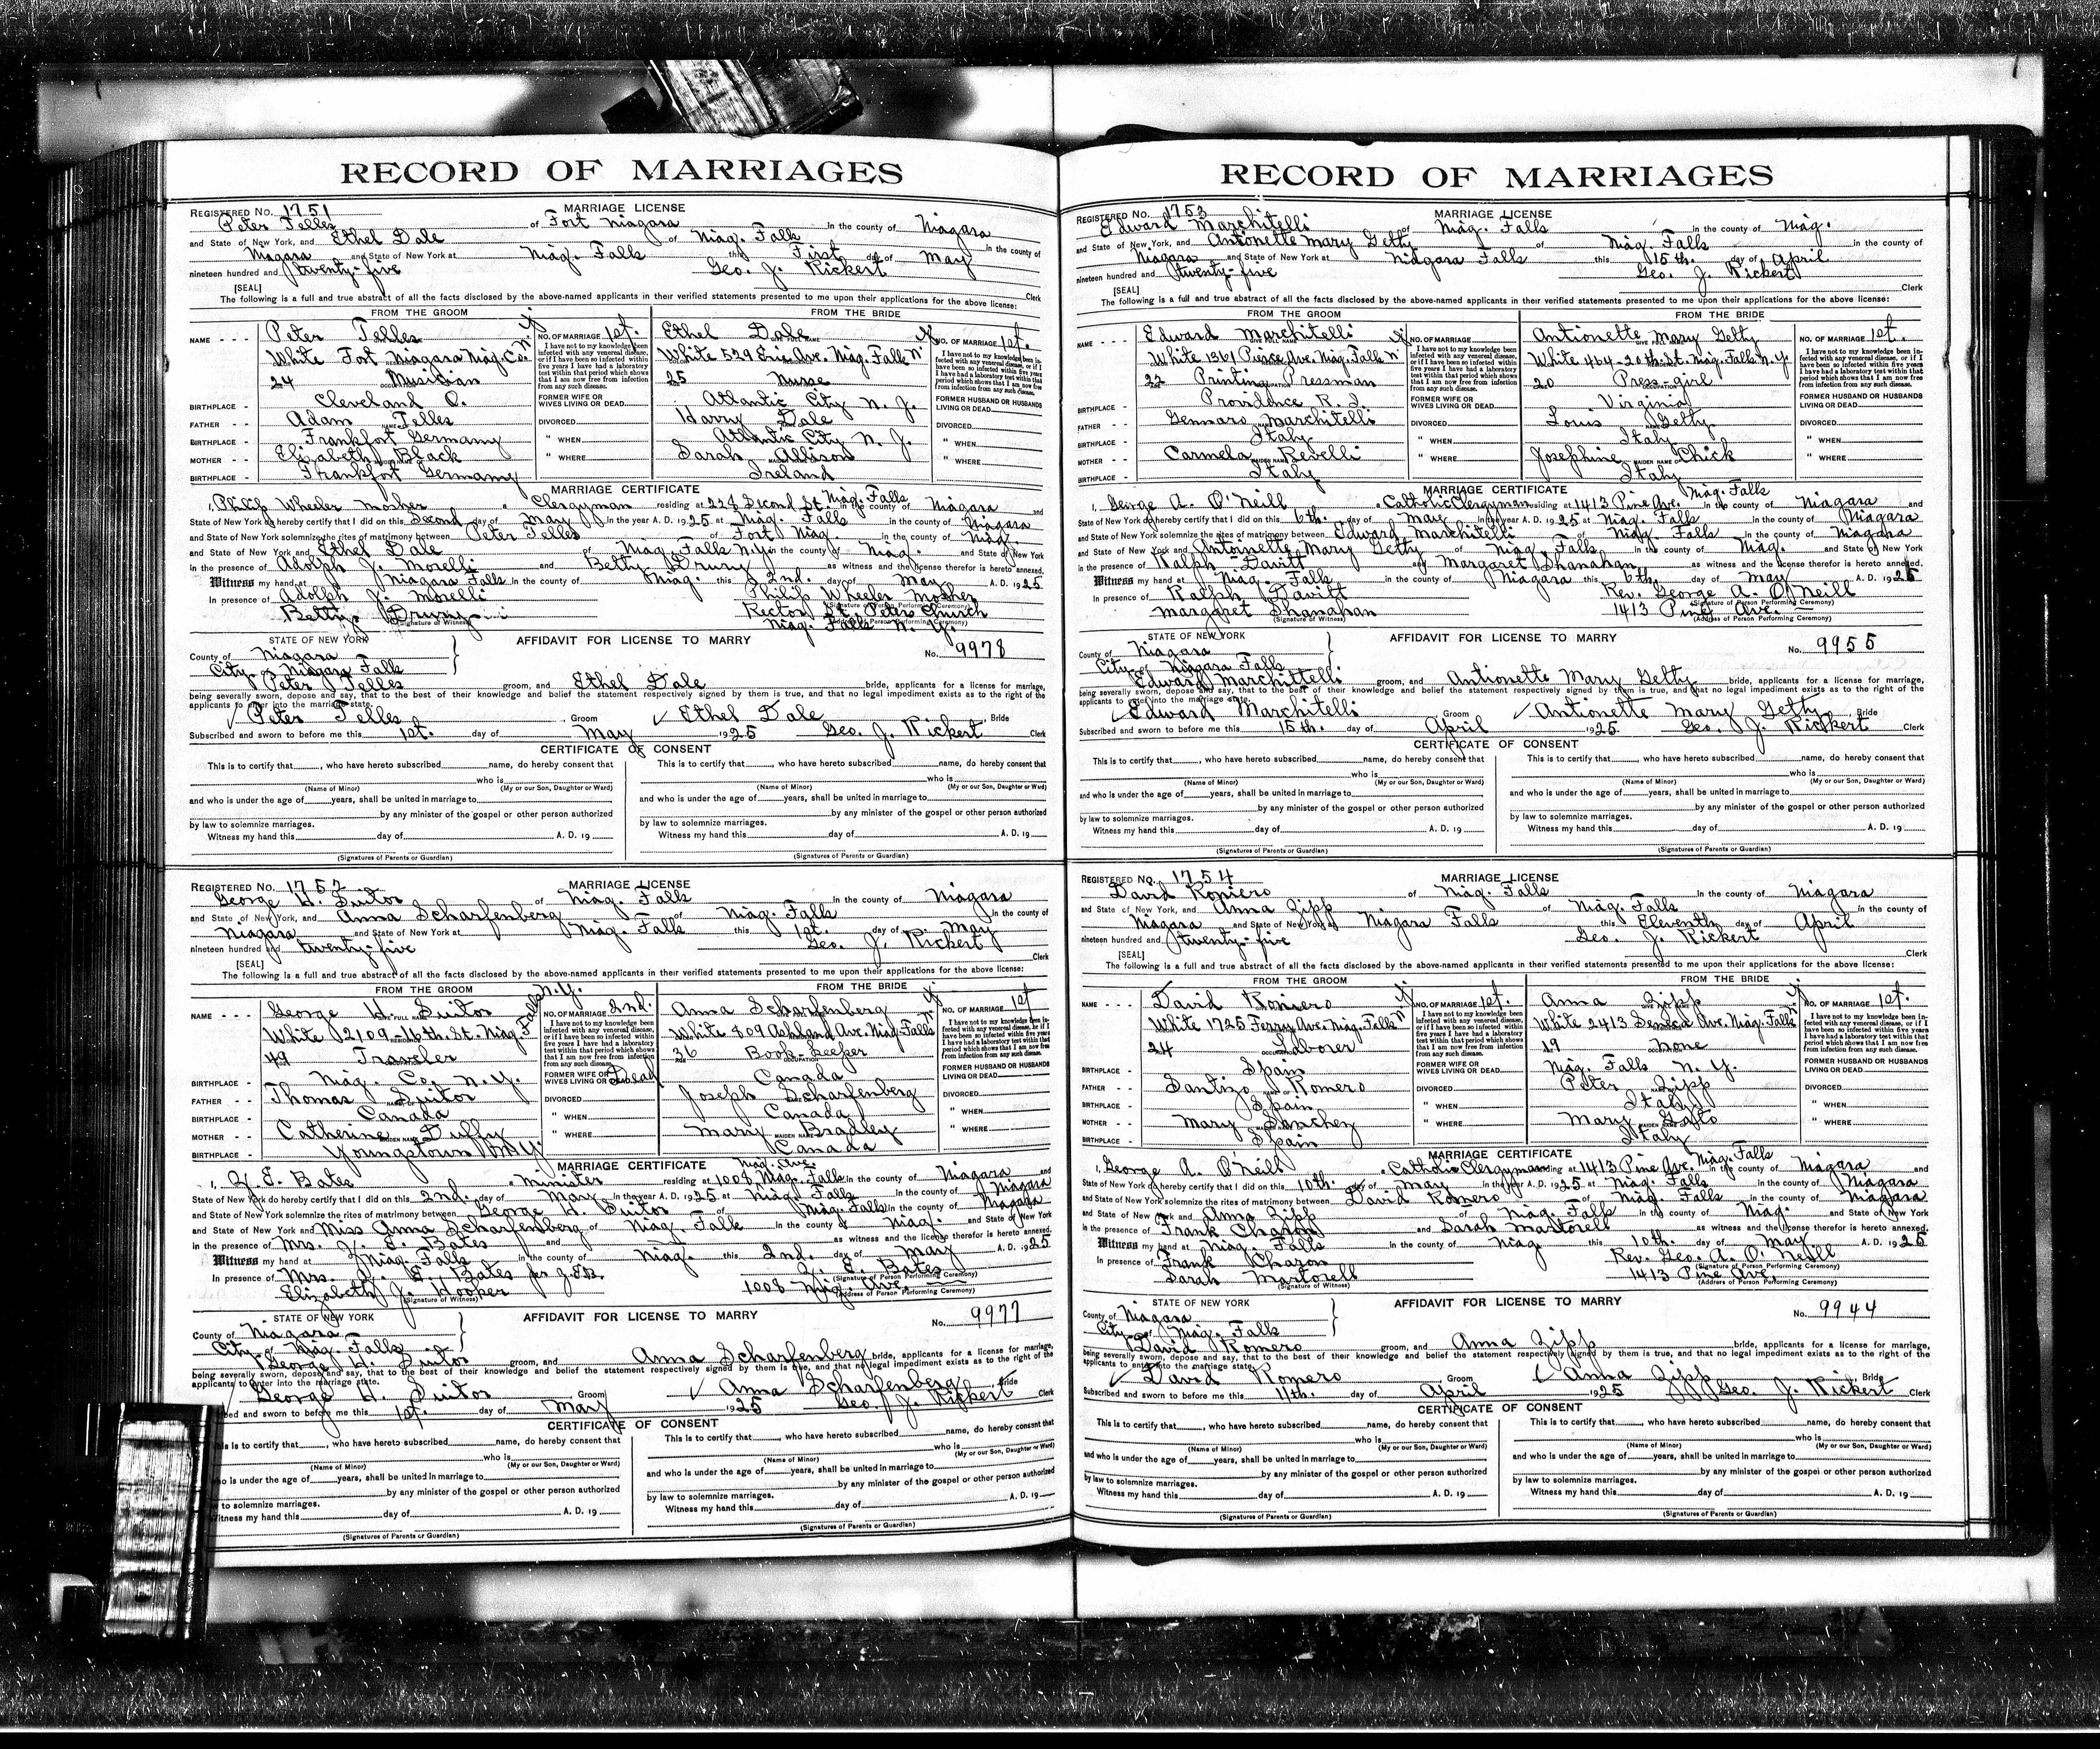 RECORD OF MARRIAGES
REGISTERED No. 1751 MARRIAGE LICENSE
Peter Telles of Fort Niagara in the county of Niagara
and State of New York, and Ethel Dale of Niag. Falls in the county of
Niagara and State of New York at Niag. Falls this First day of May
nineteen hundred and twenty-five Geo. J. Rickert
[SEAL] Clerk
The following is a full and true abstract of all the facts disclosed by the above-named applicants in their verified statements presented to me upon their applications for the above license:
FROM THE GROOM FROM THE BRIDE
NAME - - - Peter Telles NO. OF MARRIAGE 1st. Ethel Dale NO. OF MARRIAGE 1st.
White Fort Niagara Niag. Co. N.Y. White 529 Erie Ave. Niag. Falls N.Y.
I have not to my knowledge been infected with any venereal disease, or if I have been so infected within five years I have had a laboratory test within that period which shows that I am now free from infection from any such disease.
24 Musician 25 Nurse
BIRTHPLACE - Cleveland O. FORMER WIFE OR WIVES LIVING OR DEAD Atlantic City N. J. FORMER HUSBAND OR HUSBANDS LIVING OR DEAD
FATHER - - Adam Telles DIVORCED Harry Dale DIVORCED
BIRTHPLACE - Frankfort Germany " WHEN Atlantic City N. J. " WHEN
MOTHER - - Elizabeth Black " WHERE Sarah Allison " WHERE
BIRTHPLACE - Frankfort Germany Ireland
MARRIAGE CERTIFICATE
I, Philip Wheeler Mosher a Clergyman residing at 228 Second St. Niag. Falls in the county of Niagara and
State of New York do hereby certify that I did on this Second day of May in the year A. D. 1925 at Niag. Falls in the county of Niagara
and State of New York solemnize the rites of matrimony between Peter Telles of Fort Niag. in the county of Niag.
and State of New York and Ethel Dale of Niag. Falls N.Y. in the county of Niag. and State of New York
in the presence of Adolph J. Morelli and Betty Drury as witness and the license therefor is hereto annexed.
Witness my hand at Niagara Falls in the county of Niag. this 2nd. day of May A. D. 1925
In presence of Adolph J. Morelli Philip Wheeler Mosher
(Signature of Person Performing Ceremony)
Betty Drury Rector St. Peter Church
(Signature of Witness) Niag. Falls N. Y.
(Address of Person Performing Ceremony)
STATE OF NEW YORK AFFIDAVIT FOR LICENSE TO MARRY
County of Niagara No. 9978
City of Niagara Falls
Peter Telles groom, and Ethel Dale bride, applicants for a license for marriage,
being severally sworn, depose and say, that to the best of their knowledge and belief the statement respectively signed by them is true, and that no legal impediment exists as to the right of the
applicants to enter into the marriage state.
Peter Telles, Groom Ethel Dale, Bride
Subscribed and sworn to before me this 1st. day of May 1925 Geo. J. Rickert Clerk
CERTIFICATE OF CONSENT
This is to certify that, who have hereto subscribed name, do hereby consent that This is to certify that, who have hereto subscribed name, do hereby consent that
who is who is
(Name of Minor) (My or our Son, Daughter or Ward) (Name of Minor) (My or our Son, Daughter or Ward)
and who is under the age of years, shall be united in marriage to and who is under the age of years, shall be united in marriage to
by any minister of the gospel or other person authorized by any minister of the gospel or other person authorized
by law to solemnize marriages. by law to solemnize marriages.
Witness my hand this day of A. D. 19 Witness my hand this day of A. D. 19
(Signatures of Parents or Guardian) (Signatures of Parents or Guardian)
REGISTERED No. 1752 MARRIAGE LICENSE
George H. Suitor of Niag. Falls in the county of Niagara
and State of New York, and Anna Scharfenberg of Niag. Falls in the county of
Niagara and State of New York at Niag. Falls this 1st. day of May
nineteen hundred and twenty-five Geo. J. Rickert
[SEAL] Clerk
The following is a full and true abstract of all the facts disclosed by the above-named applicants in their verified statements presented to me upon their applications for the above license:
FROM THE GROOM FROM THE BRIDE
NAME - - - George H. Suitor NO. OF MARRIAGE 2nd. Anna Scharfenberg NO. OF MARRIAGE 1st
White 2109-16th. St. Niag. Falls N.Y. White 809 Ashland Ave. Niag. Falls N.Y.
I have not to my knowledge been infected with any venereal disease, or if I have been so infected within five years I have had a laboratory test within that period which shows that I am now free from infection from any such disease.
49 Traveler 36 Book keeper
BIRTHPLACE - Niag. Co. N. Y. FORMER WIFE OR WIVES LIVING OR DEAD Dead Canada FORMER HUSBAND OR HUSBANDS LIVING OR DEAD
FATHER - - Thomas Suitor DIVORCED Joseph Scharfenberg DIVORCED
BIRTHPLACE - Canada " WHEN Canada " WHEN
MOTHER - - Catherine Duffy " WHERE Mary Bradley " WHERE
BIRTHPLACE - Youngstown N.Y. Canada
MARRIAGE CERTIFICATE
I, J. E. Bates a Minister residing at 1008 Niag. Ave. Niag. Falls in the county of Niagara and
State of New York do hereby certify that I did on this 2nd. day of May in the year A. D. 1925 at Niag. Falls in the county of Niagara
and State of New York solemnize the rites of matrimony between George H. Suitor of Niag. Falls in the county of Niagara
and State of New York and Miss Anna Scharfenberg of Niag. Falls in the county of Niag. and State of New York
in the presence of Mrs. J. E. Bates and as witness and the license therefor is hereto annexed.
Witness my hand at Niag. Falls in the county of Niag. this 2nd. day of May A. D. 1925
In presence of Mrs. J. E. Bates per J.E.B. J. E. Bates
(Signature of Person Performing Ceremony)
Elizabeth J. Hooker 1008 Niag. Ave.
(Signature of Witness) (Address of Person Performing Ceremony)
STATE OF NEW YORK AFFIDAVIT FOR LICENSE TO MARRY
County of Niagara No. 9977
City of Niag. Falls
George H. Suitor groom, and Anna Scharfenberg bride, applicants for a license for marriage,
being severally sworn, depose and say, that to the best of their knowledge and belief the statement respectively signed by them is true, and that no legal impediment exists as to the right of the
applicants to enter into the marriage state.
George H. Suitor, Groom Anna Scharfenberg, Bride
bed and sworn to before me this 1st. day of May 1925 Geo. J. Rickert Clerk
CERTIFICATE OF CONSENT
his is to certify that, who have hereto subscribed name, do hereby consent that This is to certify that, who have hereto subscribed name, do hereby consent that
who is who is
(Name of Minor) (My or our Son, Daughter or Ward) (Name of Minor) (My or our Son, Daughter or Ward)
who is under the age of years, shall be united in marriage to and who is under the age of years, shall be united in marriage to
by any minister of the gospel or other person authorized by any minister of the gospel or other person authorized
to solemnize marriages. by law to solemnize marriages.
Witness my hand this day of A. D. 19 Witness my hand this day of A. D. 19
(Signatures of Parents or Guardian) (Signatures of Parents or Guardian)
RECORD OF MARRIAGES
REGISTERED No. 1753 MARRIAGE LICENSE
Edward Marchitelli of Niag. Falls in the county of Niag.
and State of New York, and Antionette Mary Getty of Niag. Falls in the county of
Niagara and State of New York at Niagara Falls this 15th. day of April
nineteen hundred and twenty-five Geo. J. Rickert
[SEAL] Clerk
The following is a full and true abstract of all the facts disclosed by the above-named applicants in their verified statements presented to me upon their applications for the above license:
FROM THE GROOM FROM THE BRIDE
NAME - - - Edward Marchitelli NO. OF MARRIAGE Antionette Mary Getty NO. OF MARRIAGE 1st.
White 1361 Pierce Ave. Niag. Falls N.Y. White 464-20th. St. Niag. Falls N.Y.
I have not to my knowledge been infected with any venereal disease, or if I have been so infected within five years I have had a laboratory test within that period which shows that I am now free from infection from any such disease.
22 Printing Pressman 20 Press girl
BIRTHPLACE - Providence R. I. FORMER WIFE OR WIVES LIVING OR DEAD Virginia FORMER HUSBAND OR HUSBANDS LIVING OR DEAD
FATHER - - Gennaro Marchitelli DIVORCED Louis Getty DIVORCED
BIRTHPLACE - Italy " WHEN Italy " WHEN
MOTHER - - Carmela Revelli " WHERE Josephine Chick " WHERE
BIRTHPLACE - Italy Italy
MARRIAGE CERTIFICATE
I, George A. O'Neill a Catholic Clergyman residing at 1413 Pine Ave. Niag. Falls in the county of Niagara and
State of New York do hereby certify that I did on this 6th. day of May in the year A. D. 1925 at Niag. Falls in the county of Niagara
and State of New York solemnize the rites of matrimony between Edward Marchitelli of Niag. Falls in the county of Niagara
and State of New York and Antoinette Mary Getty of Niag. Falls in the county of Niag. and State of New York
in the presence of Ralph Davitt and Margaret Shanahan as witness and the license therefor is hereto annexed.
Witness my hand at Niag. Falls in the county of Niagara this 6th. day of May A. D. 1925
In presence of Ralph Davitt Rev. George A. O'Neill
(Signature of Person Performing Ceremony)
Margaret Shanahan 1413 Pine Ave.
(Signature of Witness) (Address of Person Performing Ceremony)
STATE OF NEW YORK AFFIDAVIT FOR LICENSE TO MARRY
County of Niagara No. 9955
City of Niagara Falls
Edward Marchittelli groom, and Antionette Mary Getty bride, applicants for a license for marriage,
being severally sworn, depose and say, that to the best of their knowledge and belief the statement respectively signed by them is true, and that no legal impediment exists as to the right of the
applicants to enter into the marriage state.
Edward Marchitelli Groom Antionette Mary Getty, Bride
Subscribed and sworn to before me this 15th. day of April 1925. Geo. J. Rickert Clerk
CERTIFICATE OF CONSENT
This is to certify that, who have hereto subscribed name, do hereby consent that This is to certify that, who have hereto subscribed name, do hereby consent that
who is who is
(Name of Minor) (My or our Son, Daughter or Ward) (Name of Minor) (My or our Son, Daughter or Ward)
and who is under the age of years, shall be united in marriage to and who is under the age of years, shall be united in marriage to
by any minister of the gospel or other person authorized by any minister of the gospel or other person authorized
by law to solemnize marriages. by law to solemnize marriages.
Witness my hand this day of A. D. 19 Witness my hand this day of A. D. 19
(Signatures of Parents or Guardian) (Signatures of Parents or Guardian)
REGISTERED No. 1754 MARRIAGE LICENSE
David Romero of Niag. Falls in the county of Niagara
and State of New York, and Anna Zipp of Niag. Falls in the county of
Niagara and State of New York at Niagara Falls this Eleventh day of April
nineteen hundred and twenty-five Geo. J. Rickert
[SEAL] Clerk
The following is a full and true abstract of all the facts disclosed by the above-named applicants in their verified statements presented to me upon their applications for the above license:
FROM THE GROOM FROM THE BRIDE
NAME - - - David Romero NO. OF MARRIAGE 1st. Anna Zipp NO. OF MARRIAGE 1st.
White 1725 Ferry Ave. Niag. Falls N.Y. White 2413 Seneca Ave. Niag. Falls N.Y.
I have not to my knowledge been infected with any venereal disease, or if I have been so infected within five years I have had a laboratory test within that period which shows that I am now free from infection from any such disease.
24 Laborer 19 None
BIRTHPLACE - Spain FORMER WIFE OR WIVES LIVING OR DEAD Niag. Falls N. Y. FORMER HUSBAND OR HUSBANDS LIVING OR DEAD
FATHER - - Santizo Romero DIVORCED Peter Zipp DIVORCED
BIRTHPLACE - Spain " WHEN Italy " WHEN
MOTHER - - Mary Sanchez " WHERE Mary " WHERE
BIRTHPLACE - Spain Italy
MARRIAGE CERTIFICATE
I, George A. O'Neill a Catholic Clergyman residing at 1413 Pine Ave. Niag. Falls in the county of Niagara and
State of New York do hereby certify that I did on this 10th. day of May in the year A. D. 1925 at Niag. Falls in the county of Niagara
and State of New York solemnize the rites of matrimony between David Romero of Niag. Falls in the county of Niagara
and State of New York and Anna Zipp of Niag. Falls in the county of Niag. and State of New York
in the presence of Frank Charon and Sarah Martorell as witness and the license therefor is hereto annexed.
Witness my hand at Niag. Falls in the county of Niag. this 10th. day of May A. D. 1925
In presence of Frank Charon Rev. Geo. A. O'Neill
(Signature of Person Performing Ceremony)
Sarah Martorell 1413 Pine Ave.
(Signature of Witness) (Address of Person Performing Ceremony)
STATE OF NEW YORK AFFIDAVIT FOR LICENSE TO MARRY
County of Niagara No. 9944
City of Niag. Falls
David Romero groom, and Anna Zipp bride, applicants for a license for marriage,
being severally sworn, depose and say, that to the best of their knowledge and belief the statement respectively signed by them is true, and that no legal impediment exists as to the right of the
applicants to enter into the marriage state.
David Romero Groom Anna Zipp, Bride
Subscribed and sworn to before me this 11th. day of April 1925 Geo. J. Rickert Clerk
CERTIFICATE OF CONSENT
This is to certify that, who have hereto subscribed name, do hereby consent that This is to certify that, who have hereto subscribed name, do hereby consent that
who is who is
(Name of Minor) (My or our Son, Daughter or Ward) (Name of Minor) (My or our Son, Daughter or Ward)
and who is under the age of years, shall be united in marriage to and who is under the age of years, shall be united in marriage to
by any minister of the gospel or other person authorized by any minister of the gospel or other person authorized
by law to solemnize marriages. by law to solemnize marriages.
Witness my hand this day of A. D. 19 Witness my hand this day of A. D. 19
(Signatures of Parents or Guardian) (Signatures of Parents or Guardian)